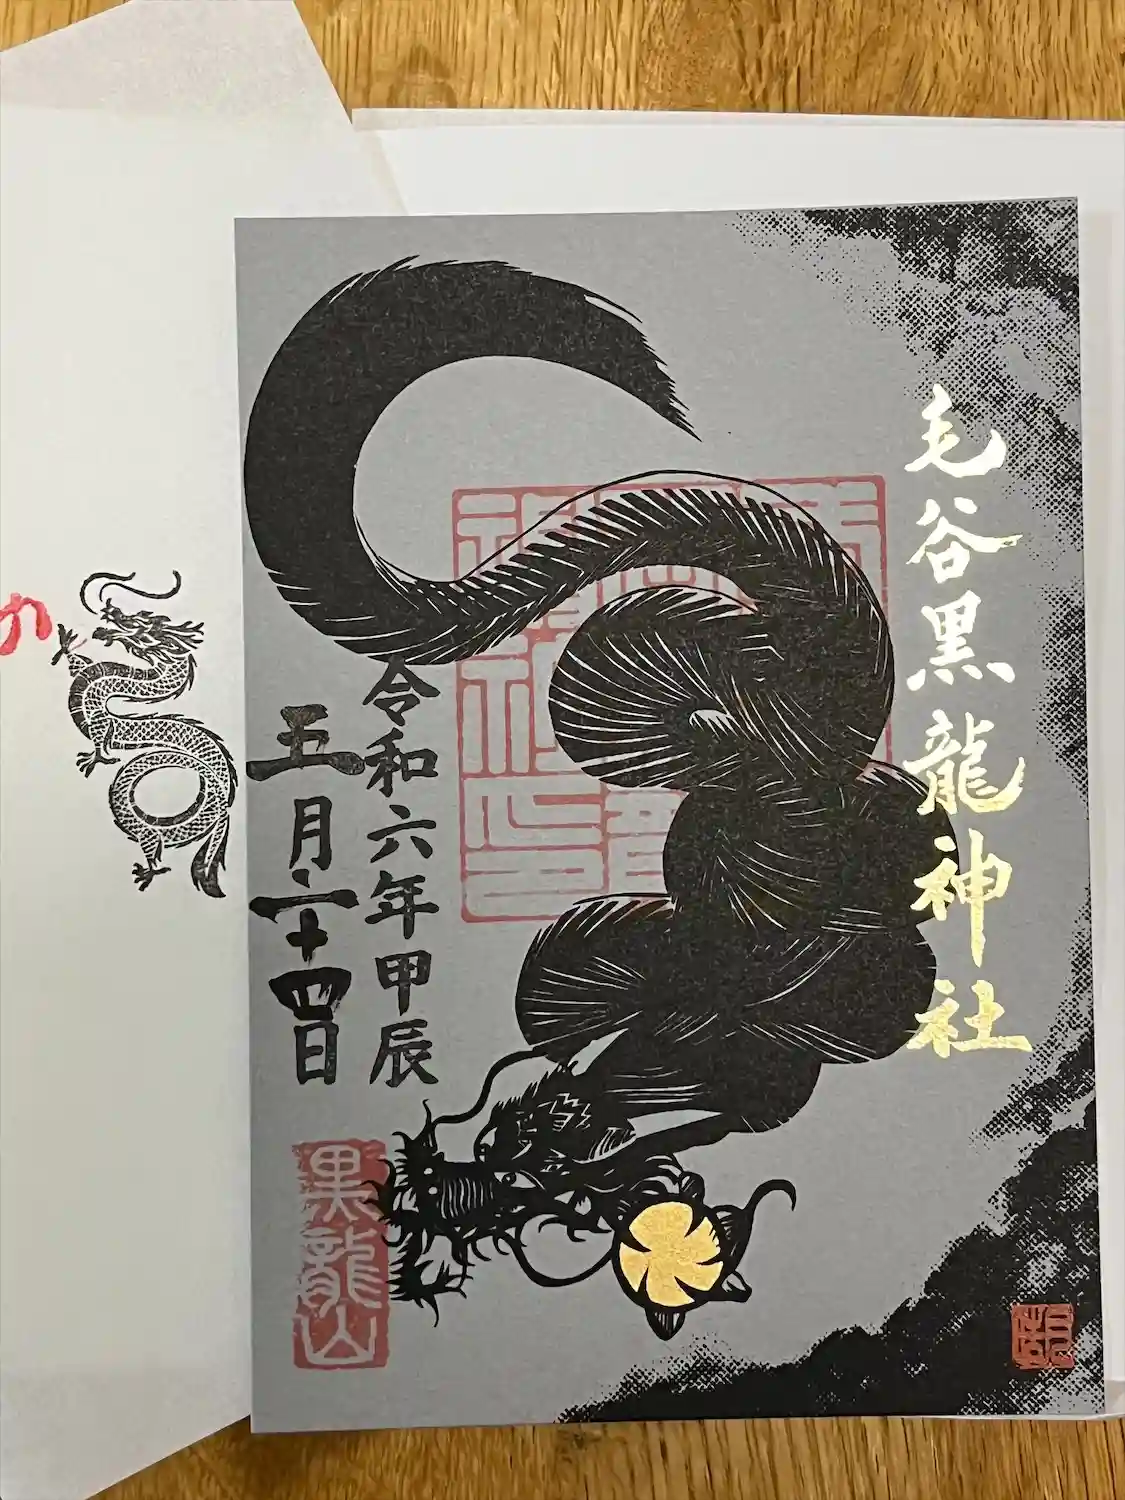 毛谷黒龍神社
令和六年甲辰
五月二十四日
黒龍山